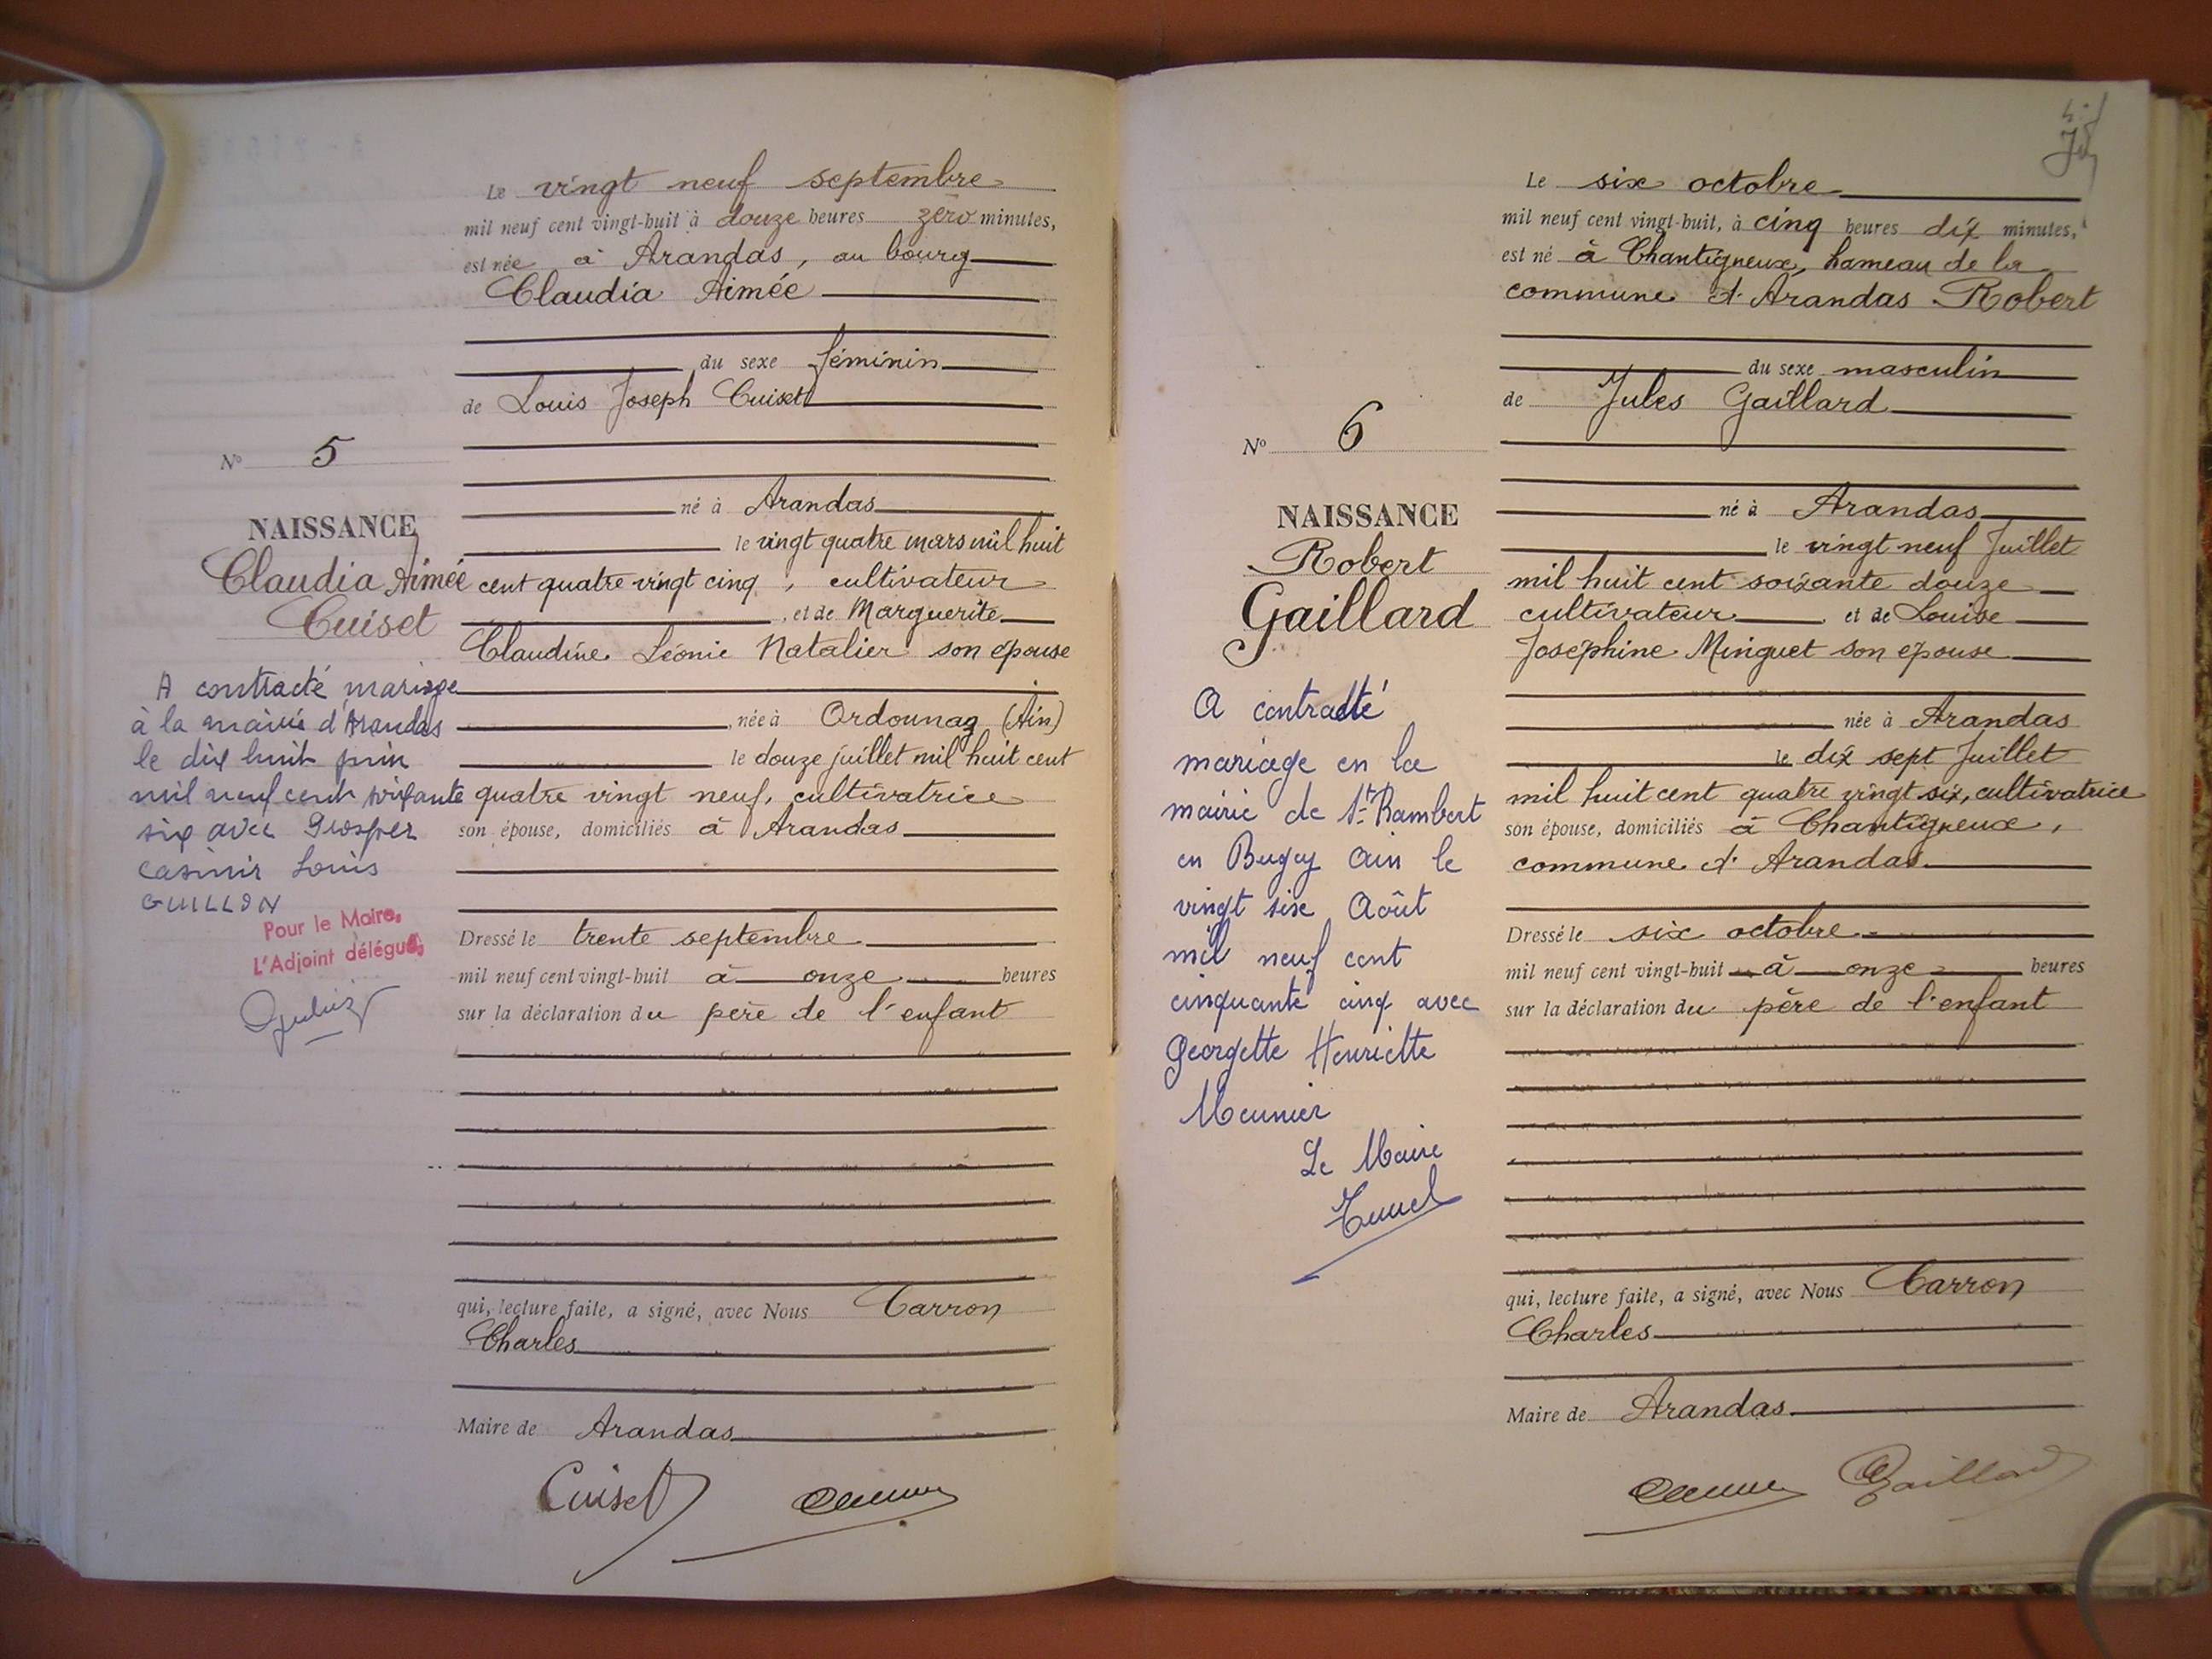 Le vingt neuf septembre
mil neuf cent vingt-huit à douze heures zéro minutes,
est née à Arandas, au bourg
Claudia Aimée
du sexe féminin
de Louis Joseph Cuiset
né à Arandas
le vingt quatre mars mil huit
cent quatre vingt cinq, cultivateur
, et de Marguerite
Claudine Léonie Natalier son épouse
, née à Ordonnaz (Ain)
le douze juillet mil huit cent
quatre vingt neuf, cultivatrice
son épouse, domiciliés à Arandas
Dressé le trente septembre
mil neuf cent vingt-huit à onze heures
sur la déclaration du père de l'enfant
qui, lecture faite, a signé, avec Nous Carron
Charles
Maire de Arandas
Cuiset
No 5
NAISSANCE
Claudia Aimée
Cuiset
A contracté mariage
à la mairie d'Arandas
le dix huit juin
mil neuf cent soixante
six avec Prosper
Casimir Louis
GUILLON
Pour le Maire,
L'Adjoint délégué,
Le six octobre
mil neuf cent vingt-huit, à cinq heures dix minutes,
est né à Chantigneux, hameau de la
commune d'Arandas Robert
du sexe masculin
de Jules Gaillard
né à Arandas
le vingt neuf Juillet
mil huit cent soixante douze
cultivateur, et de Louise
Joséphine Minguet son épouse
née à Arandas
le dix sept Juillet
mil huit cent quatre vingt six, cultivatrice
son épouse, domiciliés à Chantigneux,
commune d'Arandas.
Dressé le six octobre
mil neuf cent vingt-huit à onze heures
sur la déclaration du père de l'enfant
qui, lecture faite, a signé, avec Nous Carron
Charles
Maire de Arandas
Gaillard
No 6
NAISSANCE
Robert
Gaillard
A contracté
mariage en la
mairie de St Rambert
en Bugey Ain le
vingt six Août
mil neuf cent
cinquante cinq avec
Georgette Henriette
Meunier
Le Maire